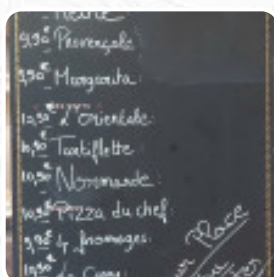 Reine
9,90€ Provençale
9,90€ Margarita:
10,90€ L'Orientale:
10,90€ Tartiflette
10,90€ Normande:
10,90€ Pizza du chef:
9,90€ 4 fromages:
10,90€ du Curry
Place